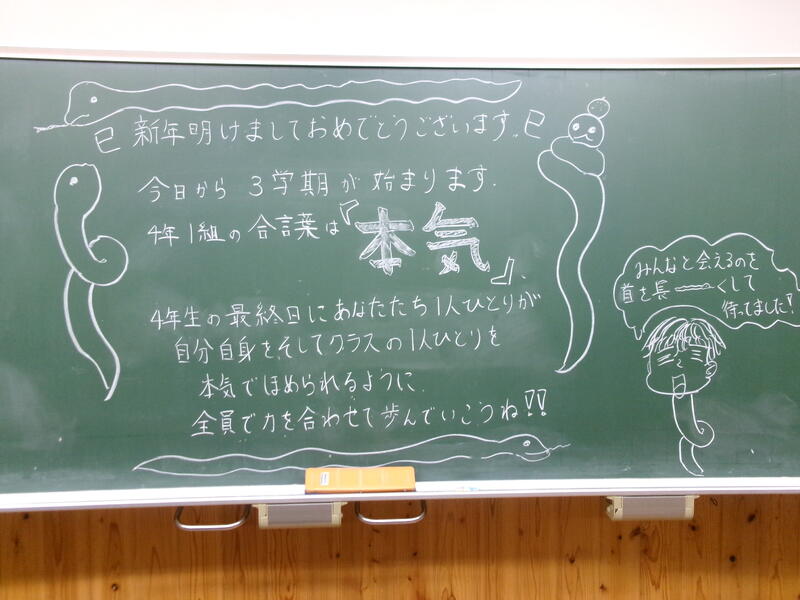 巳 新年明けましておめでとうございます。巳
今日から 3学期が 始まります。
4年1組の合言葉は『本気』。
4年生の最終日にあなたたち1人ひとりが
自分自身をそしてクラスの1人ひとりを
本気でほめられるように、
全員で力を合わせて歩んでいこうね!!
みんなと会えるのを
首を長〜くして
待ってました!